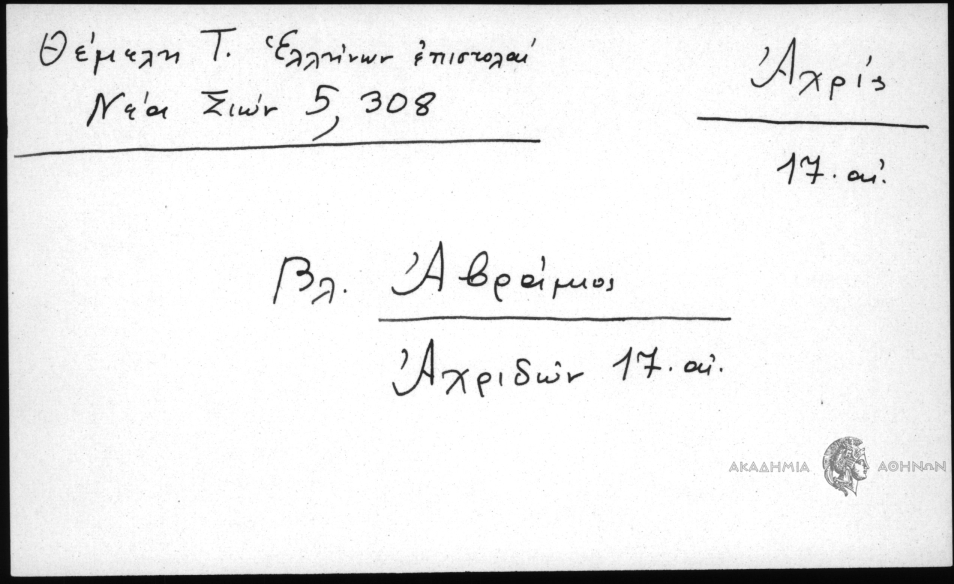 Θέμελη Τ. Ἑλλήνων ἐπιστολαί
Νέα Σιών 5, 308
Ἀχρίς
17. αἰ.
Βλ. Ἀβράμιος
Ἀχριδῶν 17. αἰ.
ΑΚΑΔΗΜΙΑ ΑΘΗΝΩΝ